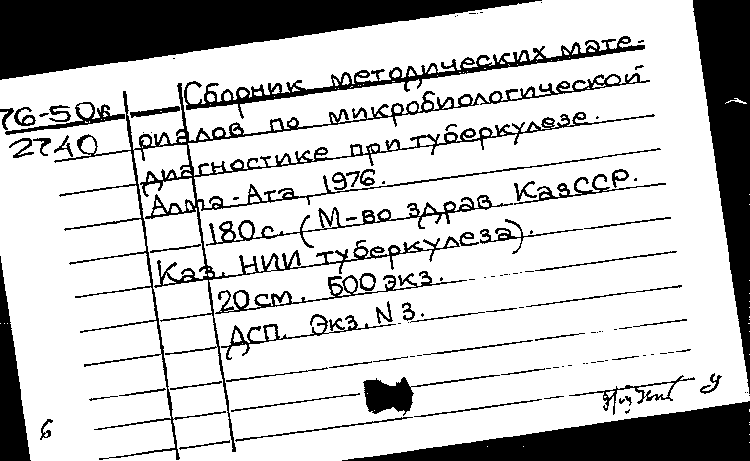 76-50к Сборник методических мате-
2740 риалов по микробиологической
диагностике при туберкулезе.
Алма-Ата, 1976.
180с. (М-во здрав. КазССР.
Каз. НИИ туберкулеза).
20см. 500экз.
ДСП. Экз. N 3.
б у